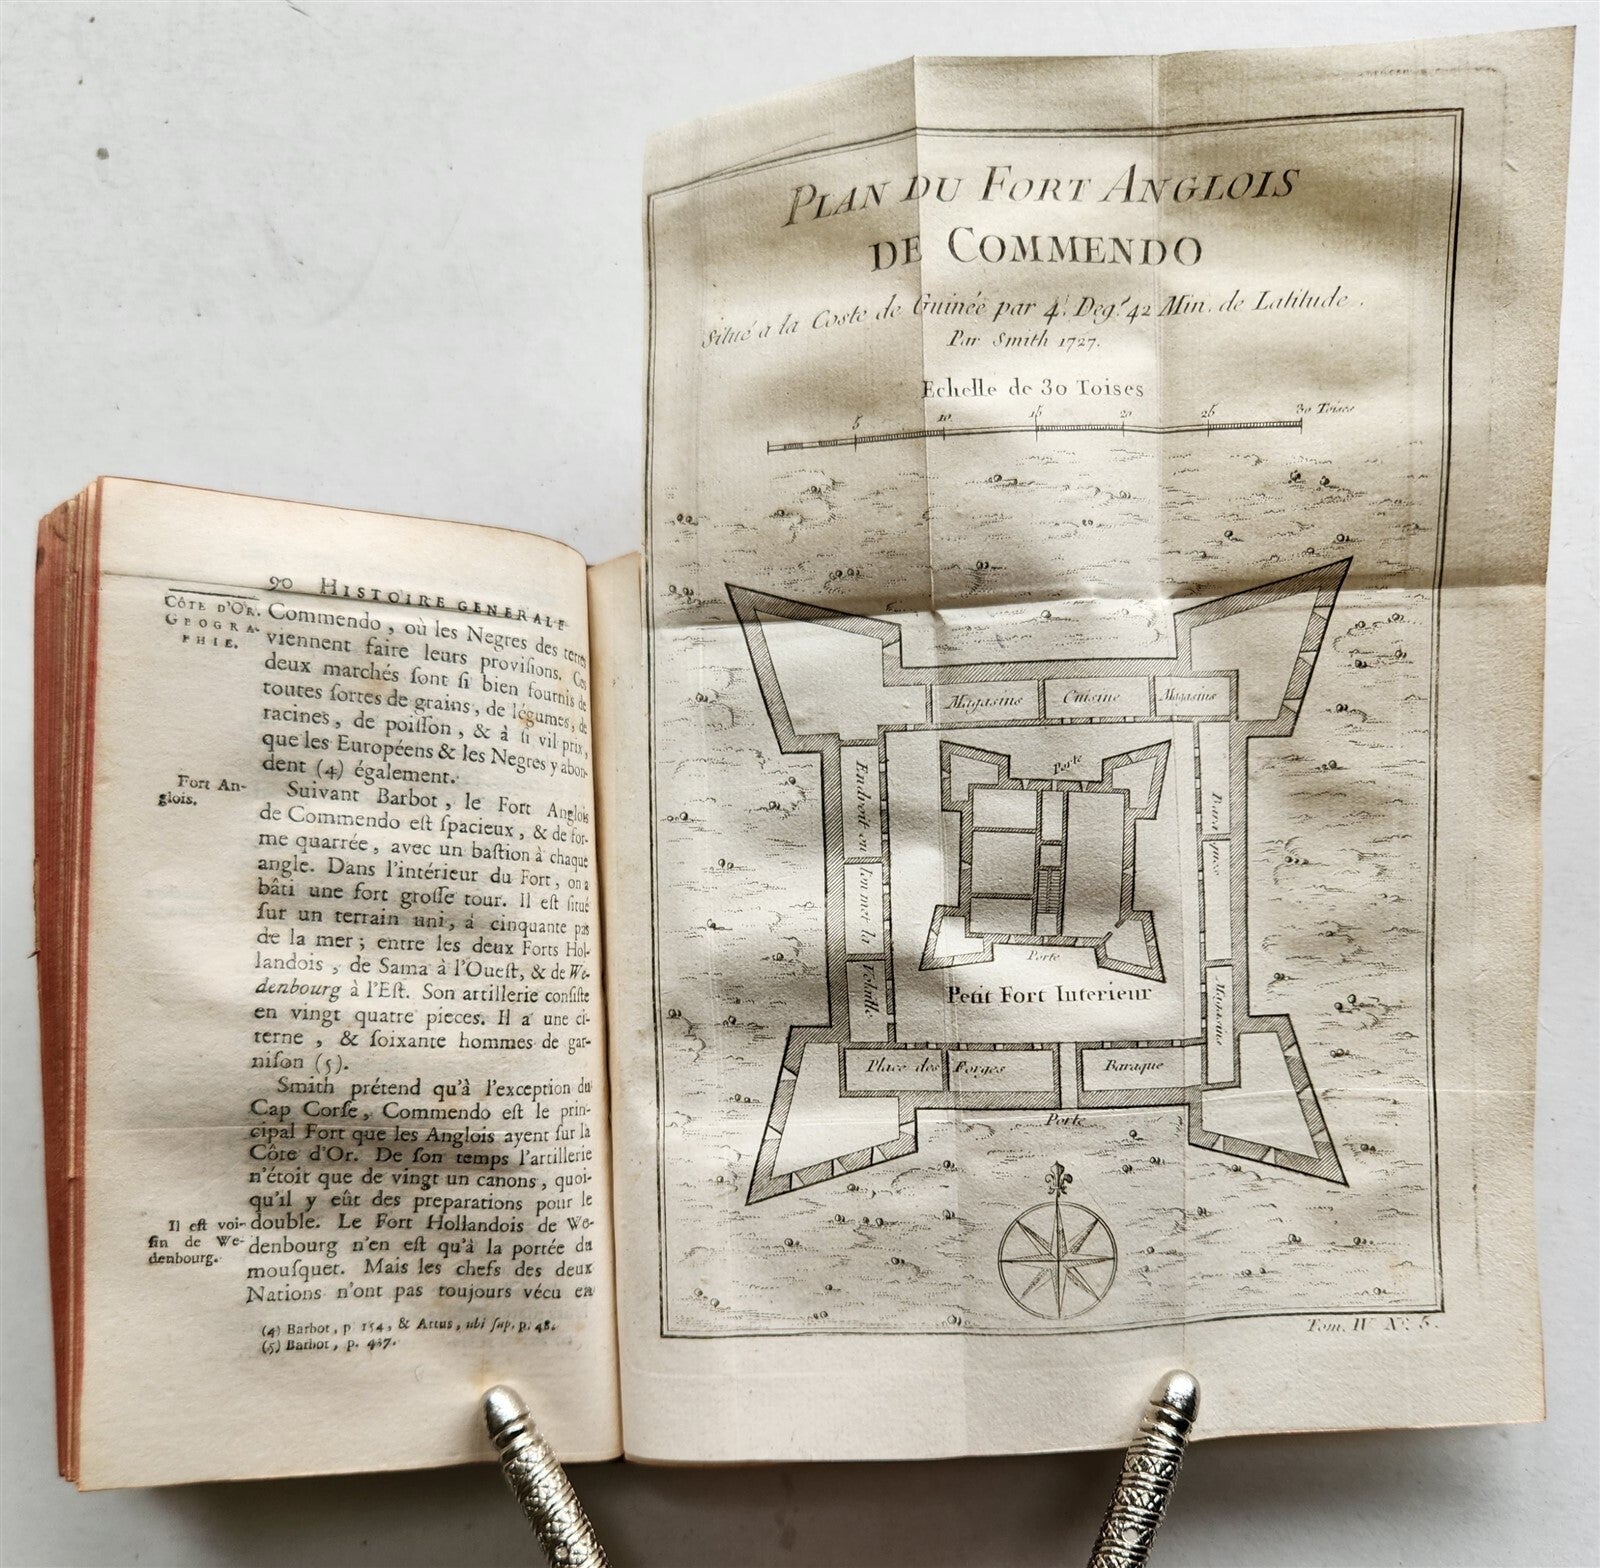 90 HISTOIRE GENERALE
CÔTE D'OR.
GEOGRA-
PHIE.
Commendo, où les Negres des terres
viennent faire leurs proviſions. Ces
deux marchés ſont ſi bien fournis de
toutes ſortes de grains, de légumes, de
racines, de poiſſon, & à ſi vil prix,
que les Européens & les Negres y abon-
dent (4) également.
Fort An-
glois.
Suivant Barbot, le Fort Anglois
de Commendo eſt ſpacieux, & de for-
me quarrée, avec un baſtion à chaque
angle. Dans l'intérieur du Fort, on a
bâti une fort groſſe tour. Il eſt ſitué
ſur un terrain uni, à cinquante pas
de la mer; entre les deux Forts Hol-
landois, de Sama à l'Oueſt, & de We-
denbourg à l'Eſt. Son artillerie conſiſte
en vingt quatre pieces. Il a une ci-
terne, & ſoixante hommes de gar-
niſon (5).
Smith prétend qu'à l'exception du
Cap Corſe, Commendo eſt le prin-
cipal Fort que les Anglois ayent ſur la
Côte d'Or. De ſon temps l'artillerie
n'étoit que de vingt un canons, quoi-
qu'il y eût des preparations pour le
double. Le Fort Hollandois de We-
denbourg n'en eſt qu'à la portée du
mouſquet. Mais les chefs des deux
Nations n'ont pas toujours vécu en
Il eſt voi-
ſin de We-
denbourg.
(4) Barbot, p. 154, & Artus, ubi ſup. p. 48.
(5) Barbot, p. 437.
PLAN DU FORT ANGLOIS
DE COMMENDO
Situé a la Coste de Guinée par 4. Deg.s 42 Min. de Latitude.
Par Smith 1727.
Echelle de 30 Toises
5 10 15 20 25 30 Toises
Magasins Cuisine Magasins
Porte
Endroit ou l'on met la Volaille
Baraques
Magasins
Porte
Petit Fort Interieur
Place des Forges
Baraque
Porte
Tom. IV N.º 5.